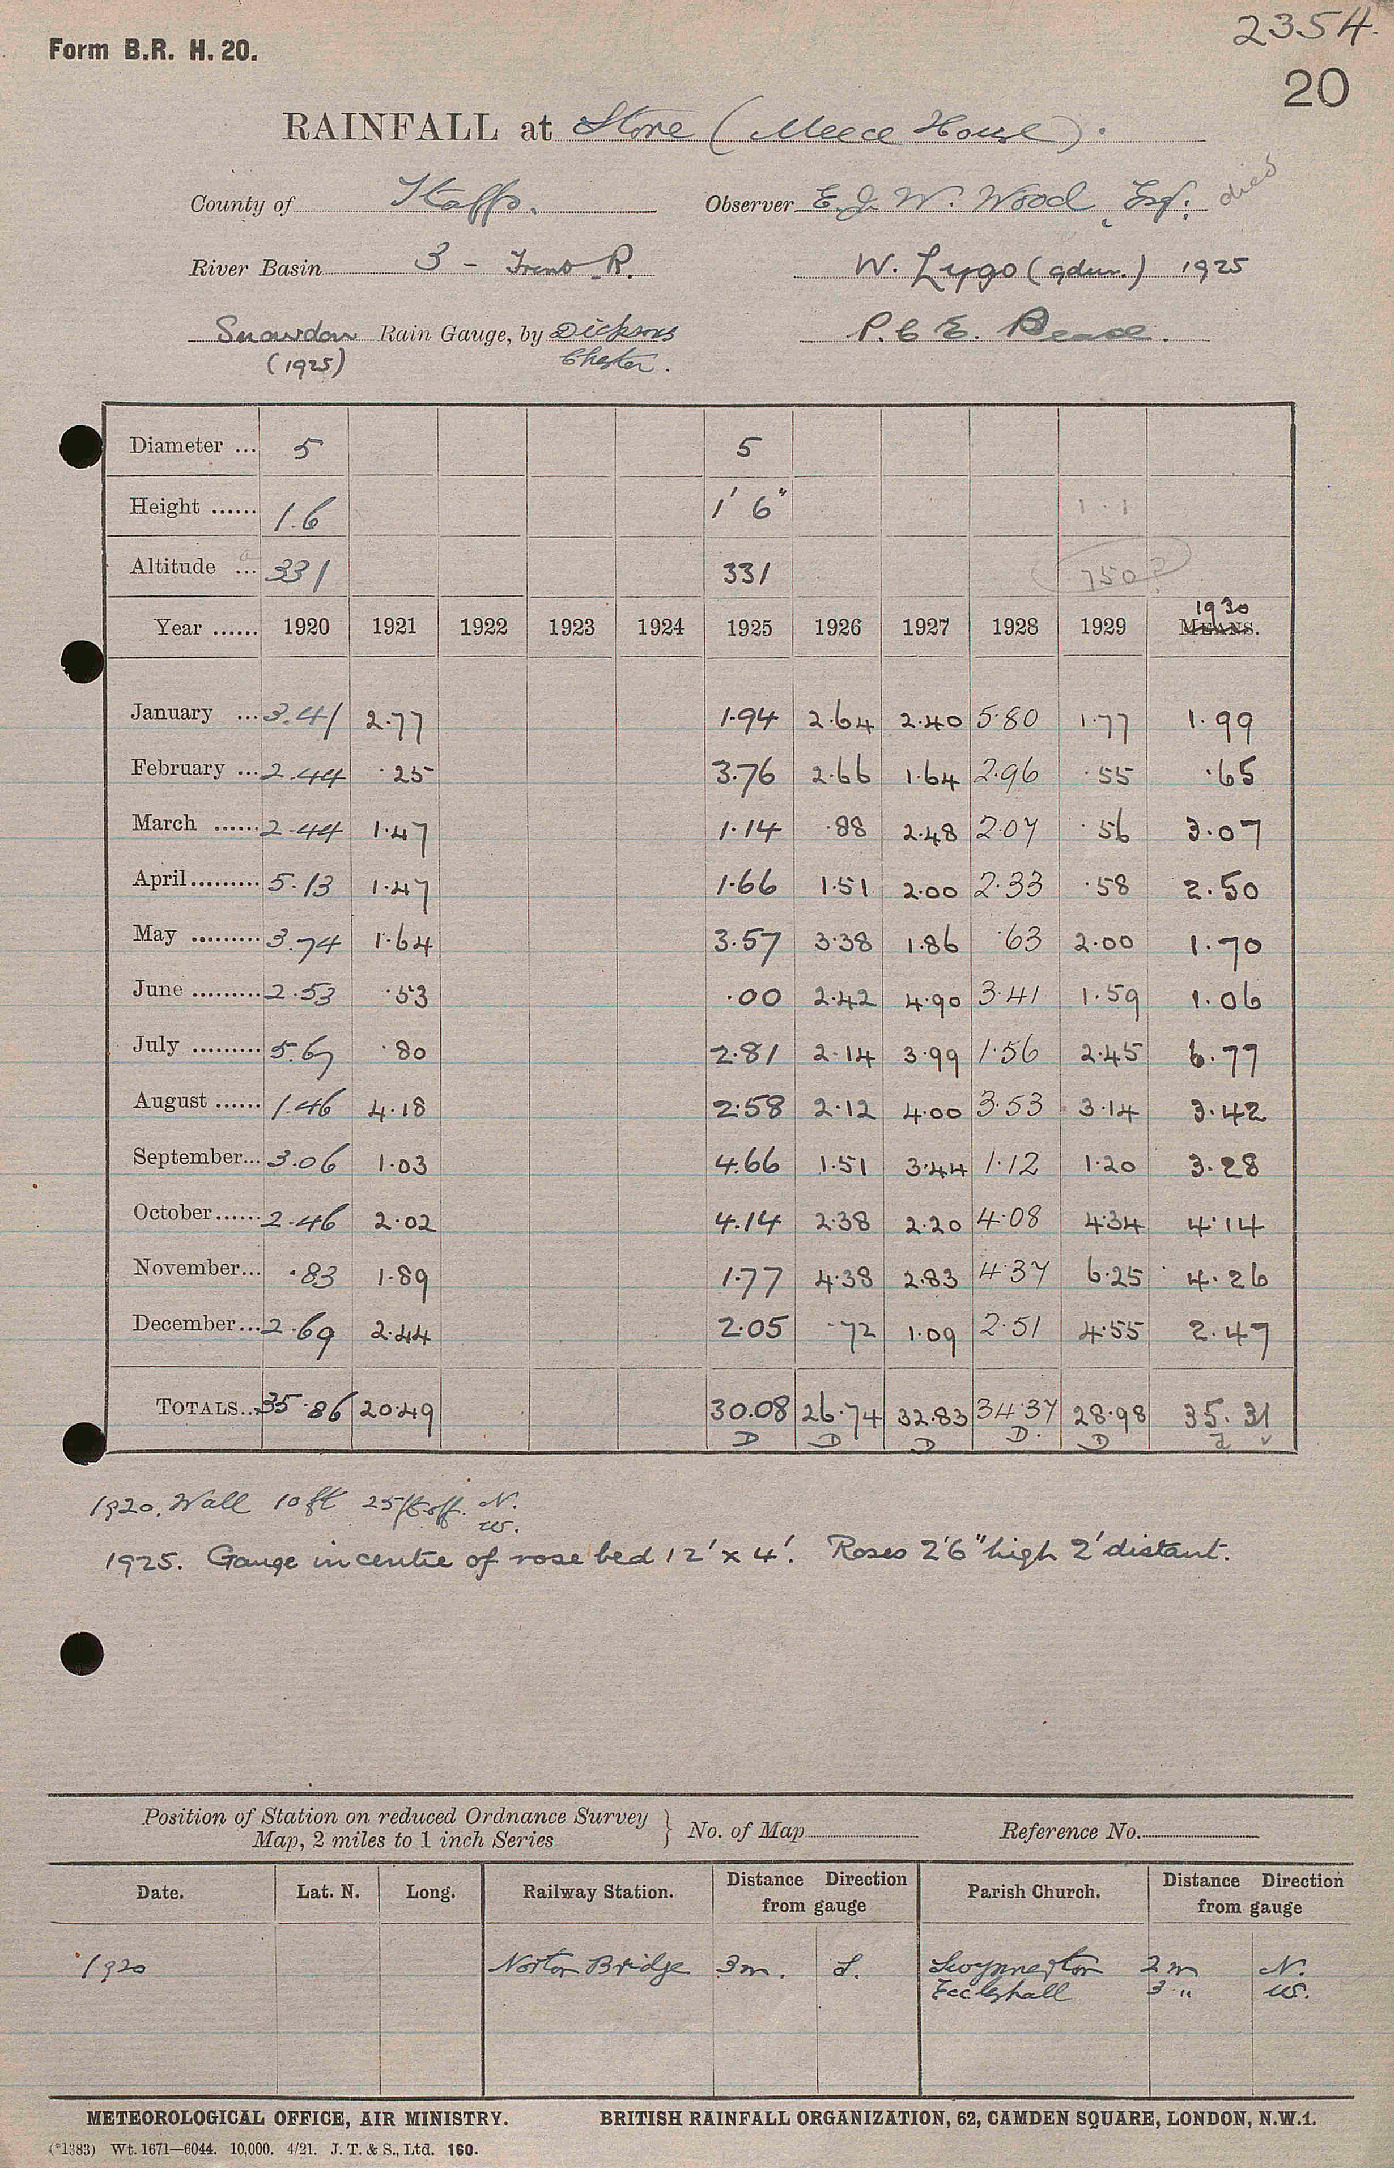 2354.
Form B.R. H. 20.
20
RAINFALL at Stone (Meece House).
died
County of Staffs. Observer E. J. W. Wood, Esq.
River Basin 3 - Trent R. W. Lygo (gdnr.) 1925
Snowdon Rain Gauge, by Dicksons P. C E. Pease.
(1925) Chester.
Diameter ... 5 5
Height ...... 1.6 1' 6" 1.1
Altitude ... 331 331 750?
1930
Year ...... 1920 1921 1922 1923 1924 1925 1926 1927 1928 1929 MEANS.
January ... 3.41 2.77 1.94 2.64 2.40 5.80 1.77 1.99
February ... 2.44 .25 3.76 2.66 1.64 2.96 .55 .65
March ...... 2.44 1.47 1.14 .88 2.48 2.07 .56 3.07
April ......... 5.13 1.47 1.66 1.51 2.00 2.33 .58 2.50
May ......... 3.74 1.64 3.57 3.38 1.86 .63 2.00 1.70
June ......... 2.53 .53 .00 2.42 4.90 3.41 1.59 1.06
July ......... 5.67 .80 2.81 2.14 3.99 1.56 2.45 6.77
August ...... 1.46 4.18 2.58 2.12 4.00 3.53 3.14 3.42
September... 3.06 1.03 4.66 1.51 3.44 1.12 1.20 3.28
October ...... 2.46 2.02 4.14 2.38 2.20 4.08 4.34 4.14
November... .83 1.89 1.77 4.38 2.83 4.37 6.25 4.26
December ... 2.69 2.44 2.05 .72 1.09 2.51 4.55 2.47
TOTALS... 35.86 20.49 30.08 26.74 32.83 34.37 28.98 35.31
D D D D. D
1920. Wall 10 ft 25 ft off. N.
W.
1925. Gauge in centre of rose bed 12' x 4'. Roses 2'6" high 2' distant.
Position of Station on reduced Ordnance Survey
Map, 2 miles to 1 inch Series } No. of Map Reference No.
Date. Lat. N. Long. Railway Station. Distance Direction from gauge Parish Church. Distance Direction from gauge
1920 Norton Bridge 3 m. S. Swynnerton 2 m N.
Eccleshall 3 " W.
METEOROLOGICAL OFFICE, AIR MINISTRY. BRITISH RAINFALL ORGANIZATION, 62, CAMDEN SQUARE, LONDON, N.W.1.
(*1383) Wt. 1671—6044. 10,000. 4/21. J. T. & S., Ltd. 160.